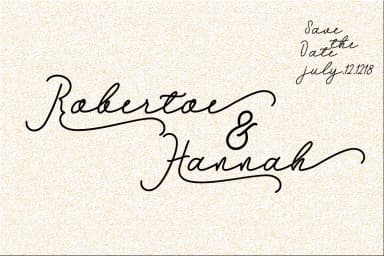 Save
the
Date
july.12.1218
Robertoe
&
Hannah